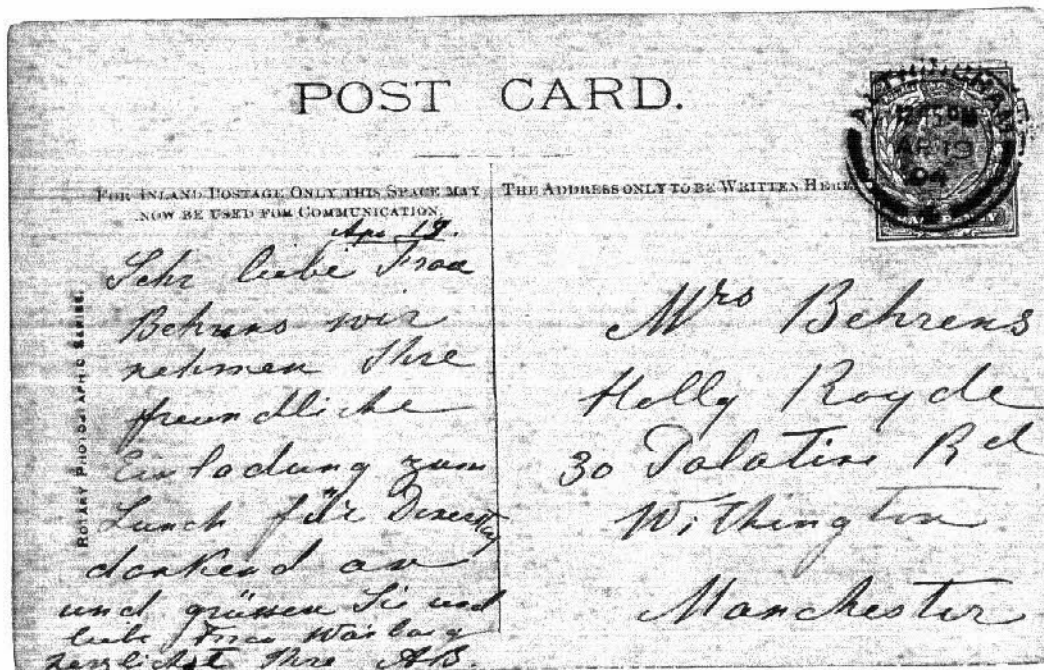 POST CARD.
FOR INLAND POSTAGE ONLY THIS SPACE MAY
NOW BE USED FOR COMMUNICATION.
THE ADDRESS ONLY TO BE WRITTEN HERE.
ROTARY PHOTOGRAPHIC SERIES.
AP 19
04
Sehr liebe Frau
Behrens wir
nehmen Ihre
freundliche
Einladung zum
Lunch für
dankend an
und grüssen Sie und
liebe Frau Warburg
herzlichst Ihre AB.
Mrs Behrens
Holly Royde
30 Palatine Rd
Withington
Manchester